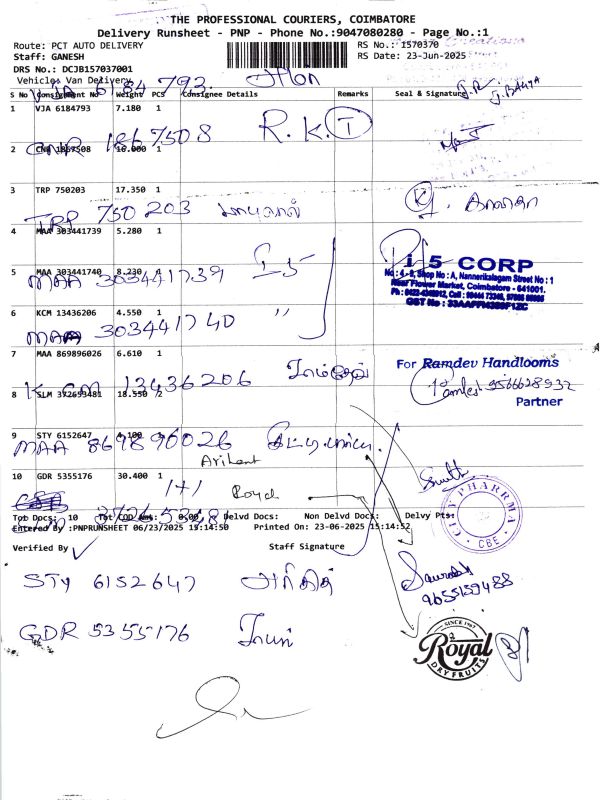 THE PROFESSIONAL COURIERS, COIMBATORE
Delivery Runsheet - PNP - Phone No.:9047080280 - Page No.:1
Route: PCT AUTO DELIVERY
Staff: GANESH
DRS No.: DCJB157037001
Vehicle: Van Delivery
RS No.: 1570370
RS Date: 23-Jun-2025
S No Consignment No Weight PCS Consignee Details Remarks Seal & Signature
VJA 6184793
1 VJA 6184793 7.180 1
R.K.T
CNR 1867508
2 CNR 1867508 16.000 1
3 TRP 750203 17.350 1
TRP 750203
4 MAA 303441739 5.280 1
i 5 CORP
No : 4 - 8, Shop No : A, Nannerikalagam Street No : 1
Near Flower Market, Coimbatore - 641001.
5 MAA 303441740 8.230 1
MAA 303441739 I 5
6 KCM 13436206 4.550 1
MAA 303441740 "
7 MAA 869896026 6.610 1
For Ramdev Handlooms
KCM 13436206 ராம்தேவ்
9566628932
Partner
8 SLM 372653481 18.550 2
9 STY 6152647 4.100 1
MAA 869896026
Arihant
10 GDR 5355176 30.400 1
1+1 Royal
CITY PHARRMA
CBE
Tot Docs: 10 Tot COD Amt: 0.00 Delvd Docs: Non Delvd Docs: Delvy Pts:
Entered By :PNPRUNSHEET 06/23/2025 15:14:50 Printed On: 23-06-2025 15:14:52
Verified By Staff Signature
STY 6152647 அரிகந்
Saurabh
9655159488
GDR 5355176 ராயல்
SINCE 1967
Royal
DRY FRUITS